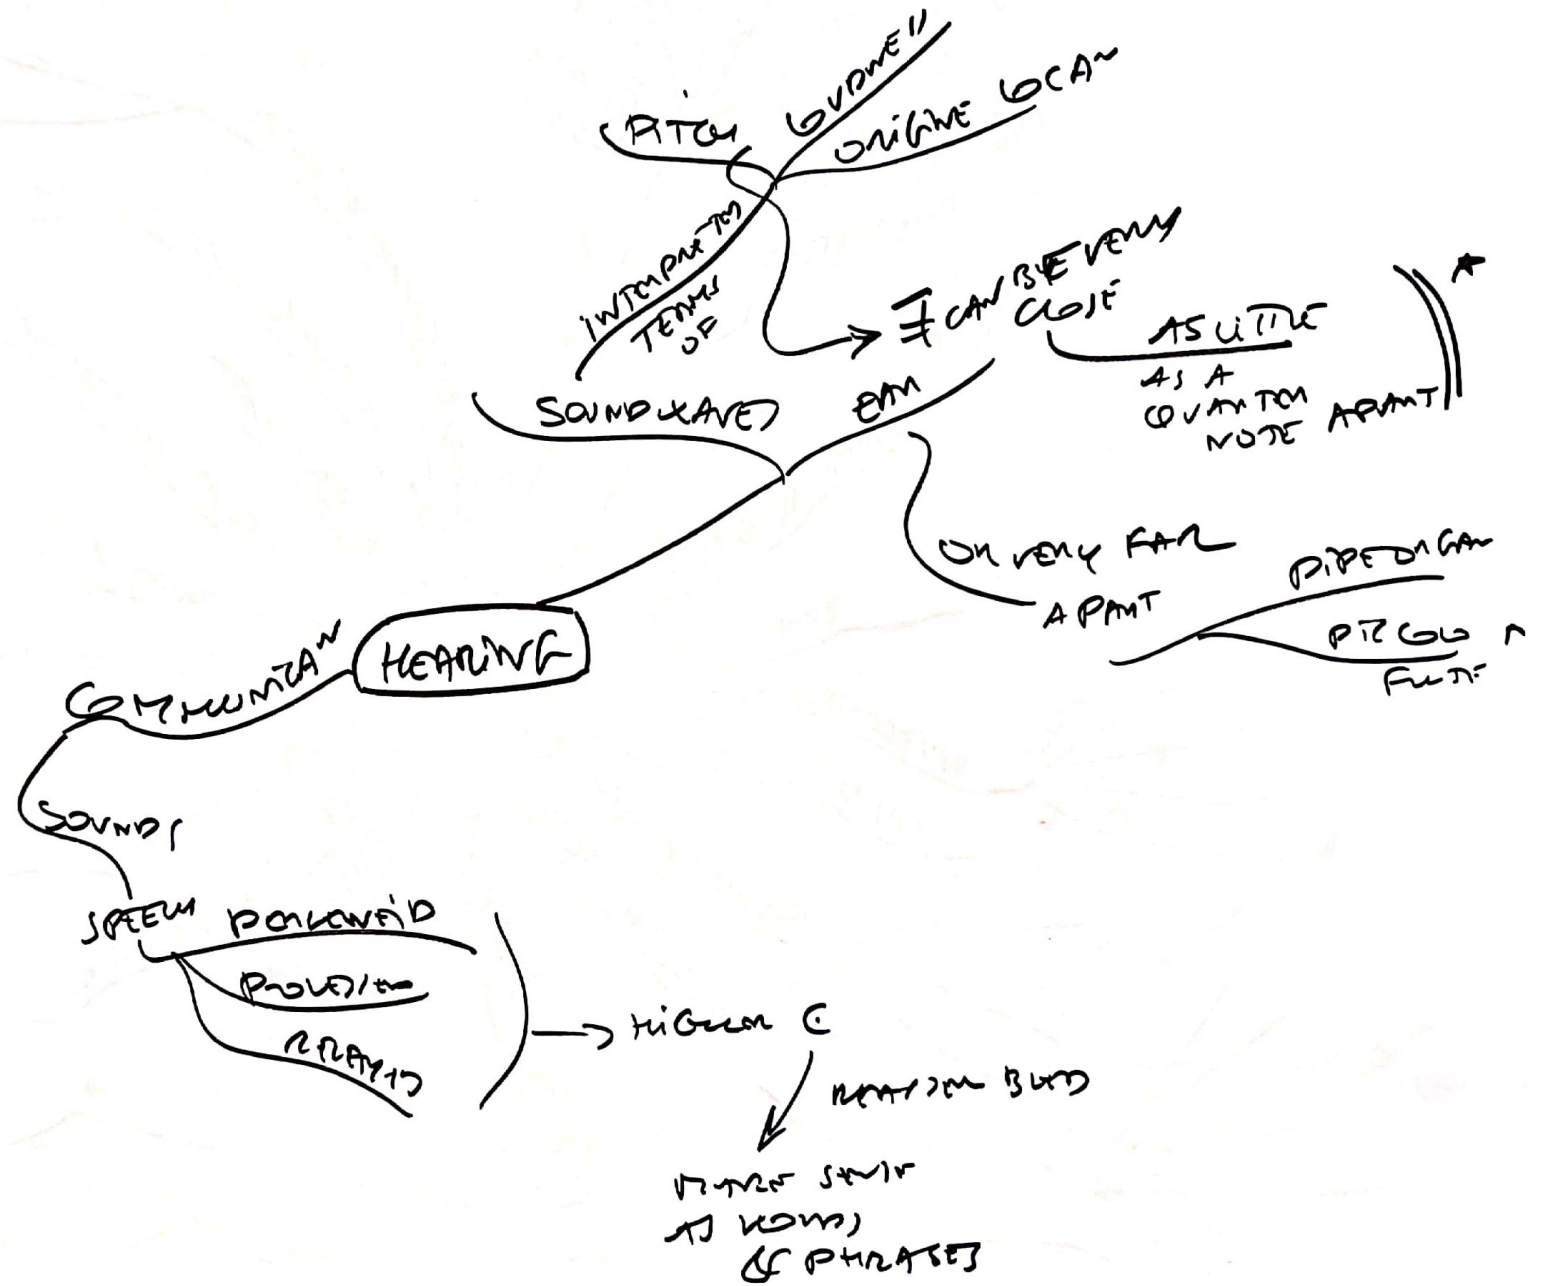 PITCH
VOLUME "
ORIGINE LOCAN
INTERPRET TO
TERMS
OF
CAN BE VERY
CLOSE
AS LITTLE
AS A
QUARTER
NOTE APART
SOUND WAVES
EAR
OR VERY FAR
APART
PIPE ORGAN
PICCOLO
FLUTE
HEARING
COMMUNICAN
SOUNDS
SPEECH
HIGHER C
MAKE SENSE
AS WORDS
& PHRASES